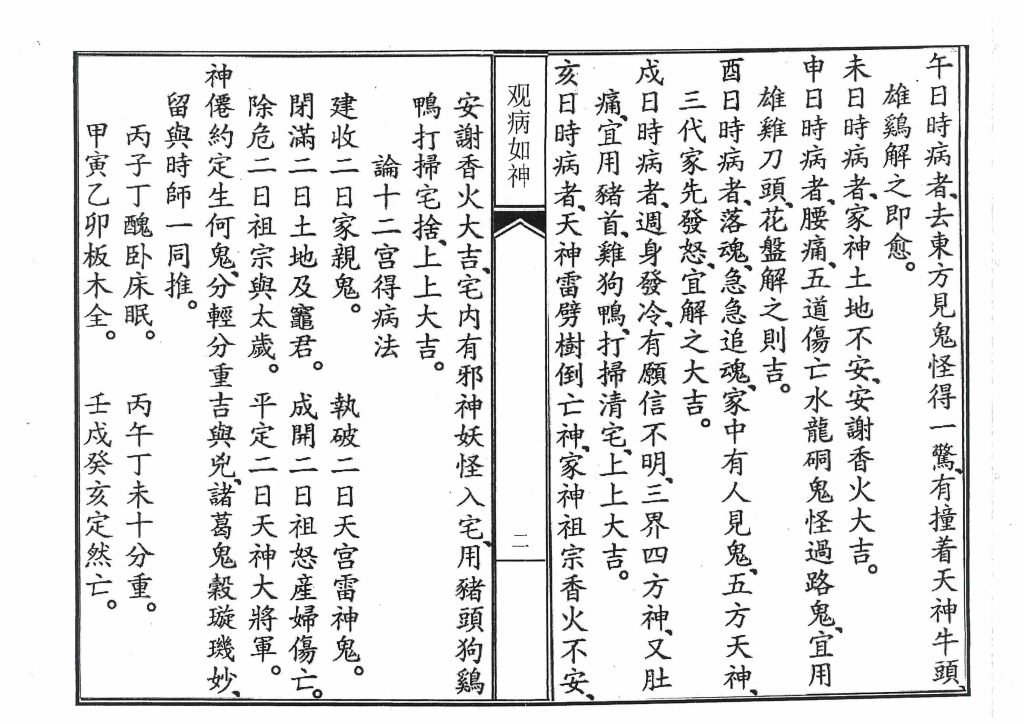 午日時病者、去東方見鬼怪得一驚、有撞着天神牛頭、
雄鷄解之即愈。
未日時病者、家神土地不安、安謝香火大吉。
申日時病者、腰痛、五道傷亡水龍硐鬼怪過路鬼、宜用
雄雞刀頭、花盤解之則吉。
酉日時病者、落魂、急急追魂、家中有人見鬼、五方天神、
三代家先發怒、宜解之大吉。
戍日時病者、週身發冷、有願信不明、三界四方神、又肚
痛、宜用豬首、雞狗鴨、打掃清宅、上上大吉。
亥日時病者、天神雷劈樹倒亡神、家神祖宗香火不安、
观病如神
二
安謝香火大吉、宅内有邪神妖怪入宅、用豬頭狗鷄
鴨打掃宅捨、上上大吉。
論十二宫得病法
建收二日家親鬼。 執破二日天宫雷神鬼。
閉滿二日土地及竈君。 成開二日祖怒産婦傷亡。
除危二日祖宗與太歲。 平定二日天神大將軍。
神僊約定生何鬼、分輕分重吉與兇、諸葛鬼穀璇璣妙、
留與時師一同推。
丙子丁醜卧床眠。 丙午丁未十分重。
甲寅乙卯板木全。 壬戍癸亥定然亡。